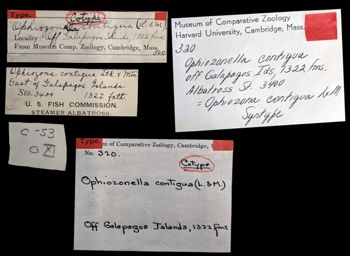 Type. Cotype
Ophiozona contigua (L. & M.)
Locality: Off Galapagos Islands, 1322 fms.
From Museum Comp. Zoology, Cambridge, Mass.
320
Ophiozona contigua Ltk & Mtn
East of Galapagos Islands
Sta. 3400 1322 fath.
U. S. FISH COMMISSION.
STEAMER ALBATROSS.
C-53
Museum of Comparative Zoology
Harvard University, Cambridge, Mass.
320
Ophiozonella contigua
off Galapagos Ids, 1322 fms.
Albatross St. 3400
= Ophiozona contigua L&M
Syntype
Type. of Comparative Zoology, Cambridge,
No. 320.
Cotype
Ophiozonella contigua (L. & M.)
Off Galapagos Islands, 1322 fms